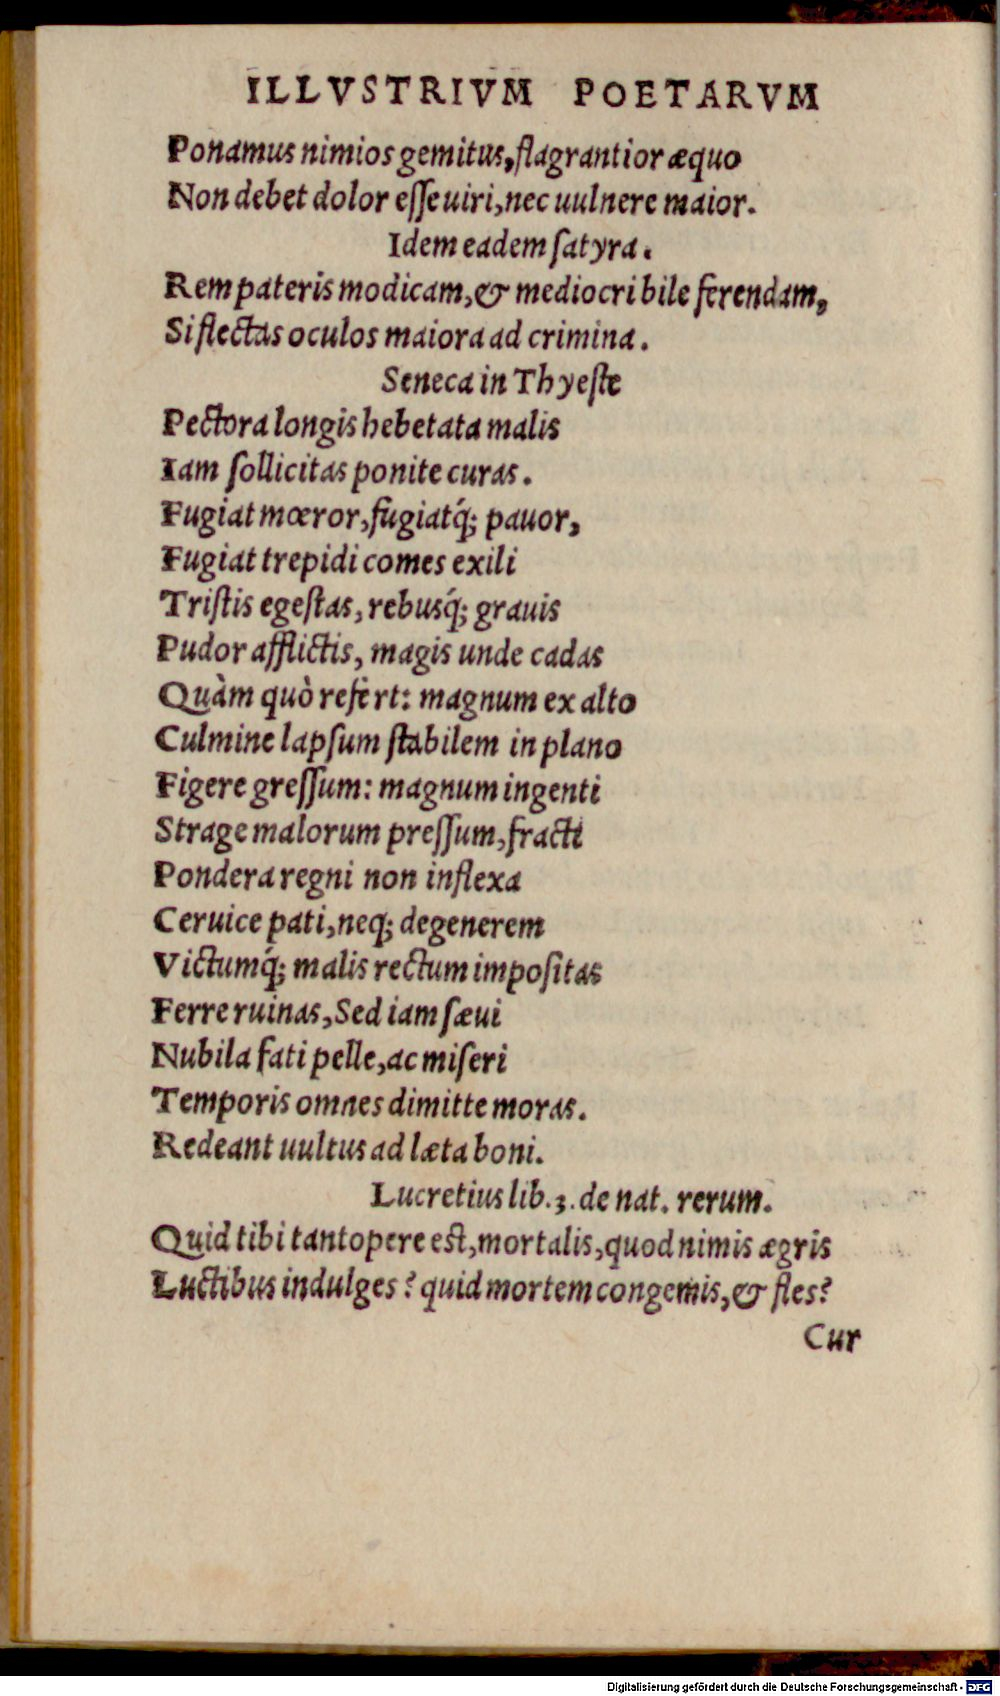 ILLVSTRIVM POETARVM
Ponamus nimios gemitus, flagrantior æquo
Non debet dolor eſſe uiri, nec uulnere maior.
Idem eadem ſatyra.
Rem pateris modicam, & mediocri bile ferendam,
Si flectas oculos maiora ad crimina.
Seneca in Thyeſte
Pectora longis hebetata malis
Iam ſollicitas ponite curas.
Fugiat mœror, fugiatq́; pauor,
Fugiat trepidi comes exili
Triſtis egeſtas, rebusq́; grauis
Pudor afflictis, magis unde cadas
Quàm quò refert: magnum ex alto
Culmine lapſum ſtabilem in plano
Figere greſſum: magnum ingenti
Strage malorum preſſum, fracti
Pondera regni non inflexa
Ceruice pati, neq; degenerem
Victumq́; malis rectum impoſitas
Ferre ruinas, Sed iam ſæui
Nubila fati pelle, ac miſeri
Temporis omnes dimitte moras.
Redeant uultus ad læta boni.
Lucretius lib. 3. de nat. rerum.
Quid tibi tantopere eſt, mortalis, quod nimis ægris
Luctibus indulges? quid mortem congemis, & fles?
Cur
Digitalisierung gefördert durch die Deutsche Forschungsgemeinschaft - DFG